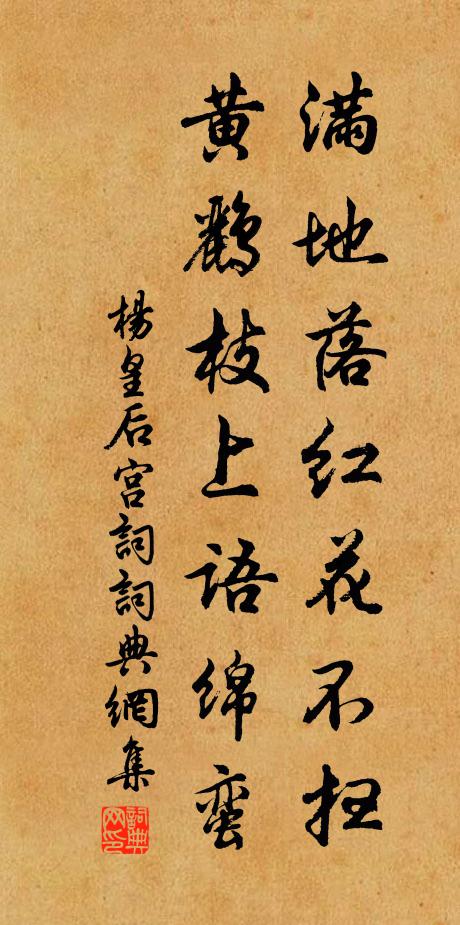 满地落红花不扫
黄鹂枝上语绵蛮
杨皇后宫詞詞典網集
詞典网印